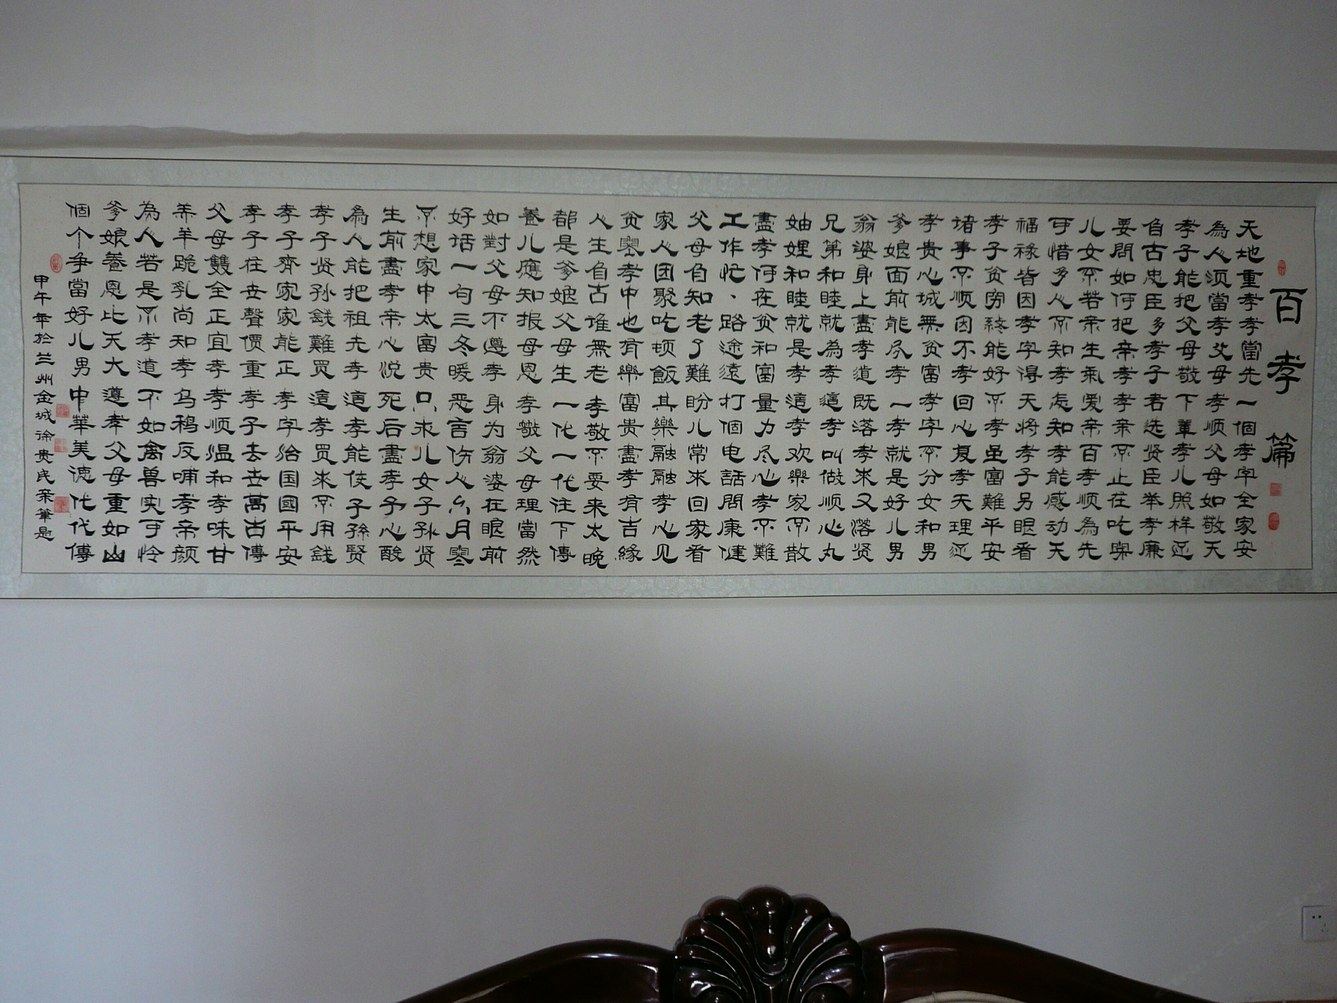 百孝篇
天地重孝孝當先一個孝字全家安
為人須當孝父母孝順父母如敬天
孝子能把父母敬下輩孝儿照样还
自古忠臣多孝子君选贤臣举孝廉
要問如何把亲孝孝亲不止在吃穿
儿女不若亲生氣爱亲百孝顺為先
可惜多人不知孝怎知孝能感动天
福禄皆因孝字得天将孝子另眼看
孝子贫穷終能好不孝虽富難平安
诸事不顺因不孝回心复孝天理还
孝贵心城無贫富孝字不分女和男
爹娘面前能尽孝一孝就是好儿男
翁婆身上盡孝道既落孝来又落贤
兄弟和睦就為孝這孝叫做顺心丸
妯娌和睦就是孝這孝欢樂家不散
盡孝何在贫和富量力尽心孝不難
工作忙、路途遠打個电話問康健
父母自知老了難盼儿常來回家看
家人团聚吃顿飯其樂融融孝心见
贫穷孝中也有樂富贵盡孝有吉緣
人生自古谁無老孝敬不要来太晚
都是爹娘父母生一代一代往下傳
養儿應知报母恩孝敬父母理當然
如對父母不遵孝身为翁婆在眼前
好话一句三冬暖恶言伤人六月寒
不想家中太富贵只求儿女子孙贤
生前盡孝亲心悦死后盡孝子心酸
為人能把祖先孝這孝能使子孫賢
孝子贤孙錢難買這孝買来不用錢
孝子齊家家能正孝字治国國平安
孝子在世聲價重孝子去世萬古傳
父母雙全正宜孝孝顺温和孝味甘
羔羊跪乳尚知孝乌鸦反哺孝亲颜
為人若是不孝道不如禽兽实可怜
爹娘養恩比天大遵孝父母重如山
個个争當好儿男中華美德代代傳
甲午年於兰州金城徐贵民亲筆